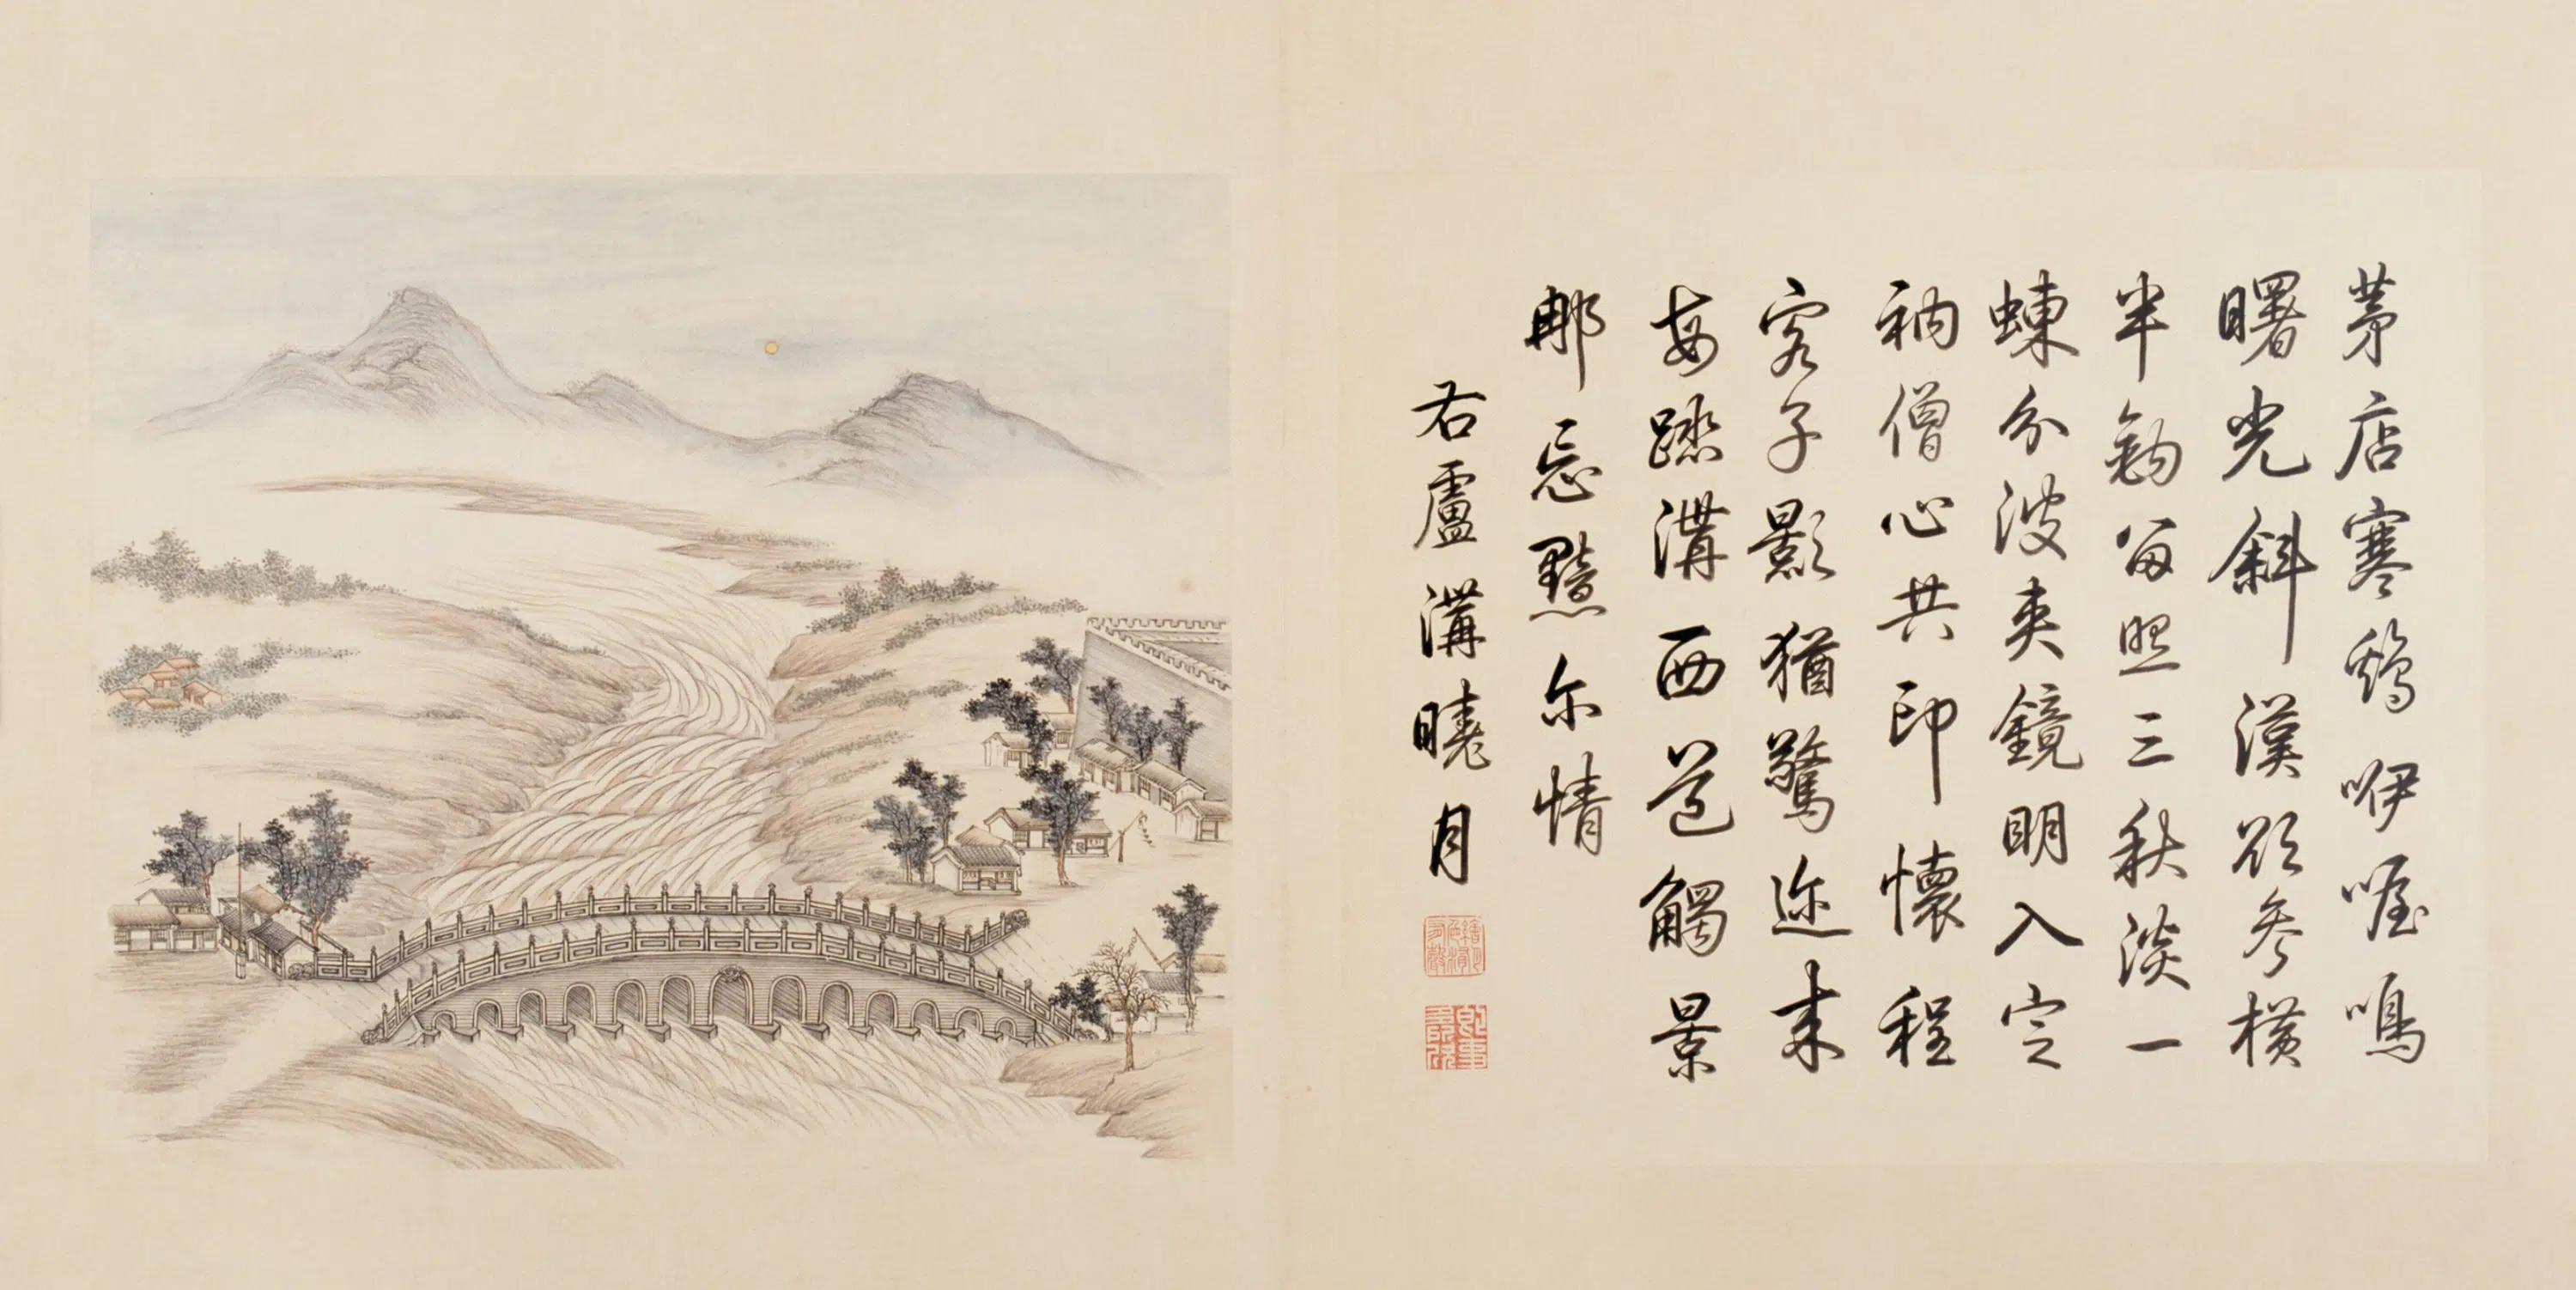 茅店寒鷄咿喔鳴
曙光斜漢欲參橫
半鈎留照三秋淡一
蝀分波夾鏡明入定
衲僧心共印懷程
客子影猶驚迩來
每踏溝西道觸景
那忘黯尔情
右盧溝曉月